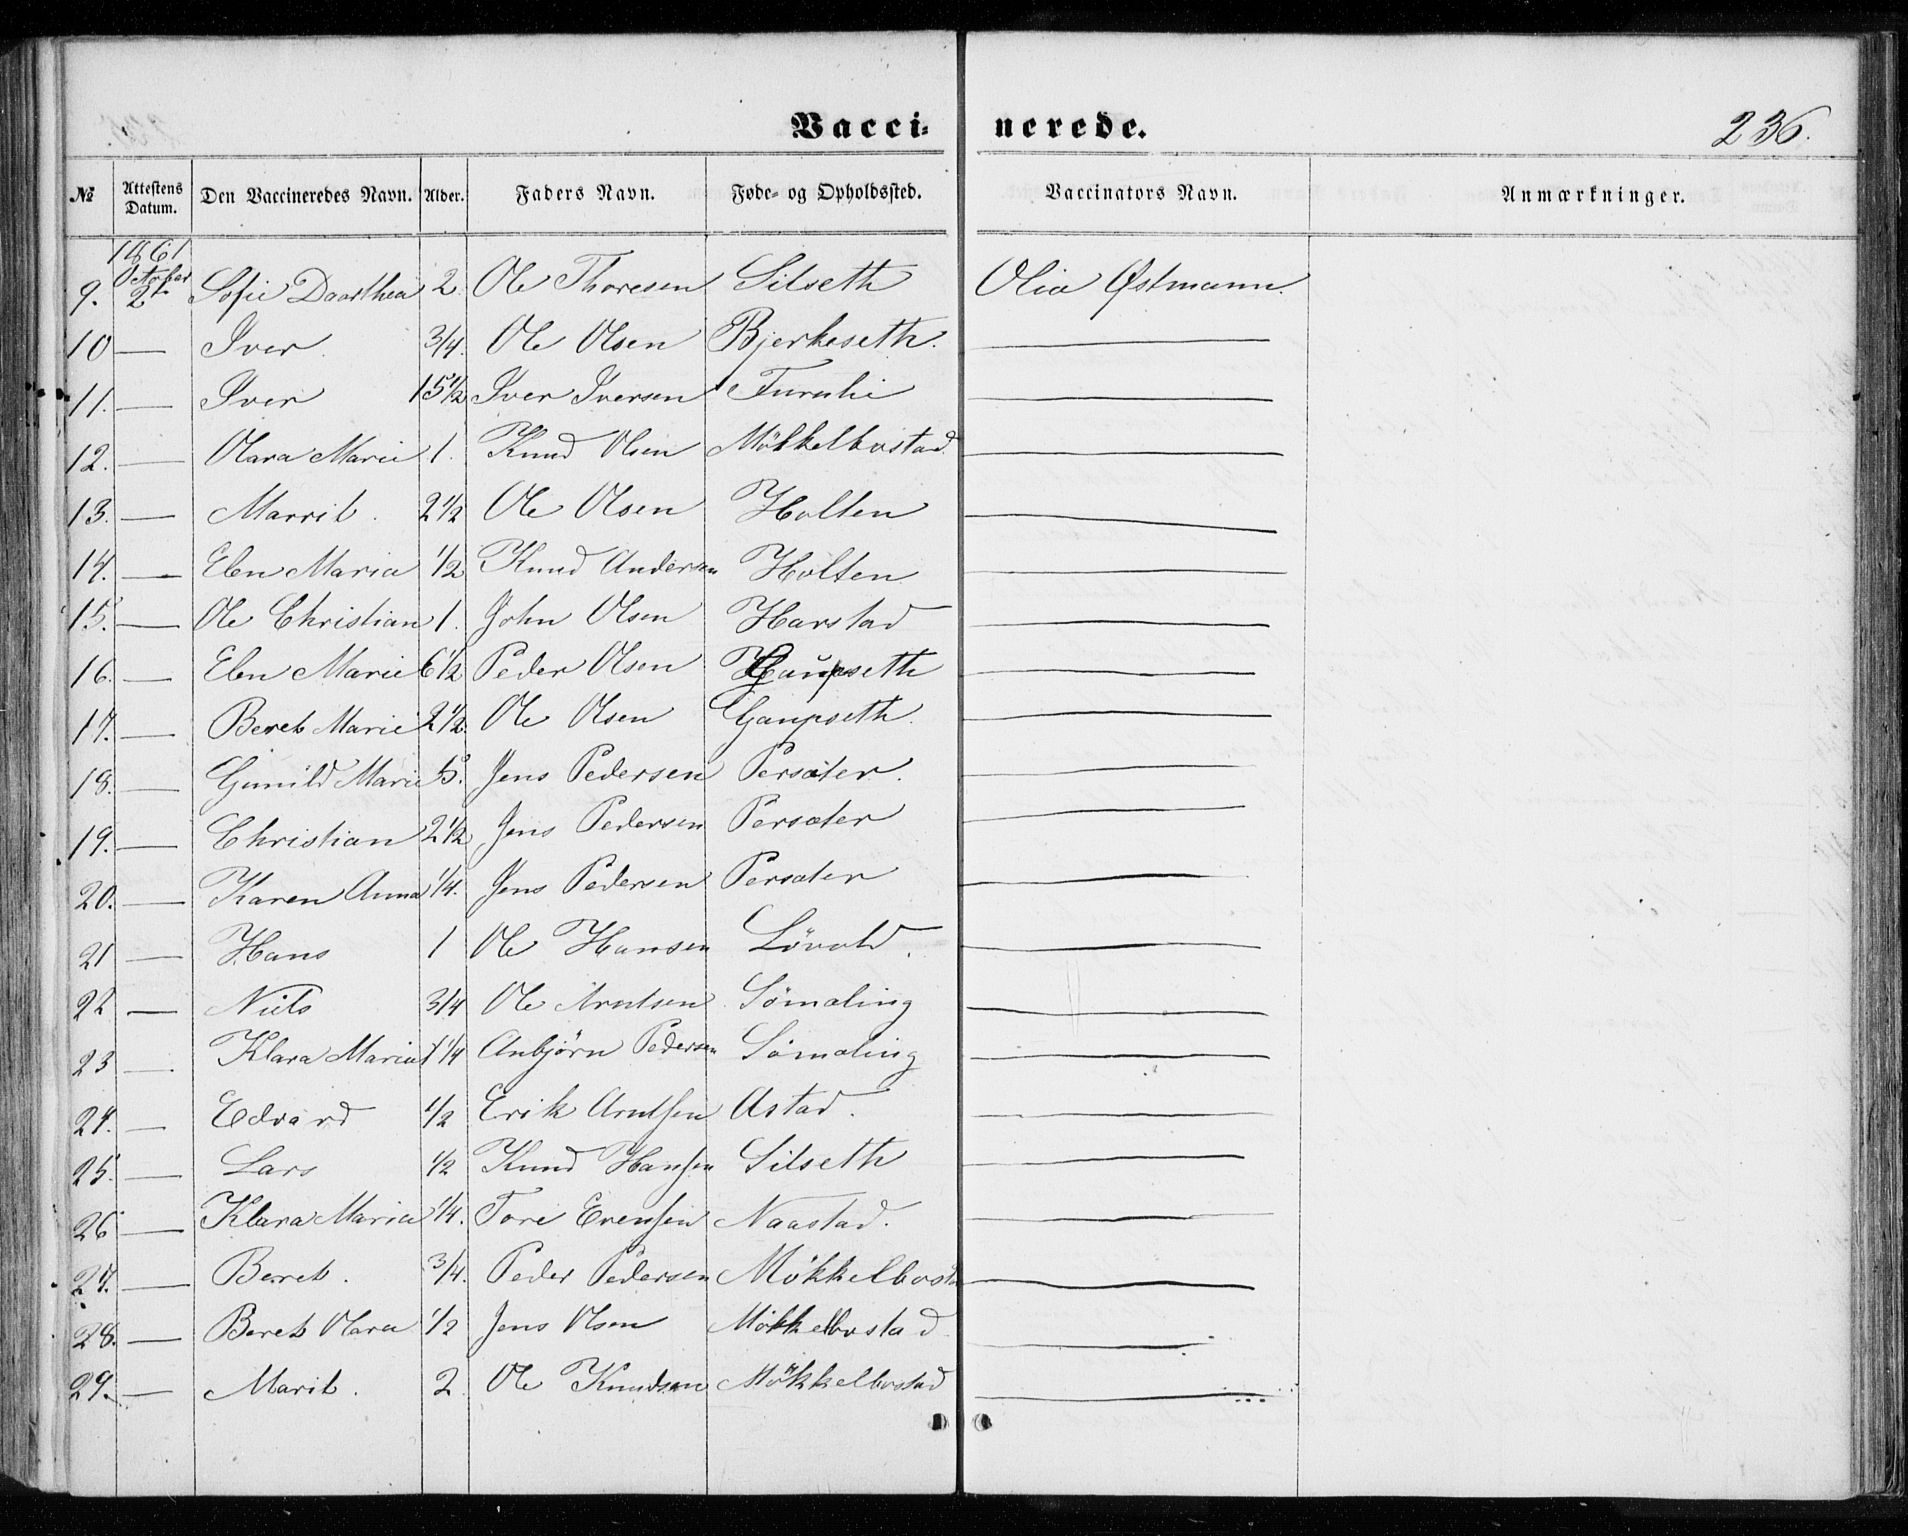 Vacci- nerede. 236.
№ Attestens Datum. Den Vaccineredes Navn. Alder. Faders Navn. Føde- og Opholdssted. Vaccinators Navn. Anmærkninger.
1861
October
9. 2 Sofie Dorthea 2. Ole Thoresen Silseth Olia Østmann.
10 — Iver 3/4. Ole Olsen Bjerkeseth. —
11. — Iver 15 1/2 Iver Iversen Furulie —
12. — Olava Marie 1. Knud Olsen Møkkelbostad —
13. — Marrit. 2 1/2 Ole Olsen Holten —
14. — Elen Maria 1/2 Knud Andersen Holten —
15. — Ole Christian 1. John Olsen Harstad —
16. — Elen Marie 6 1/2 Peder Olsen Gaupseth —
17. — Beret Marie 2 1/2. Ole Olsen Gaupseth. —
18. — Gunild Marie 5. Jens Pedersen Persæter. —
19. — Christian 2 1/2 Jens Pedersen Persæter —
20. — Karen Anna 1/4. Jens Pedersen Persæter —
21 — Hans 1 Ole Hansen Løvold. —
22 — Niels 3/4 Ole Arntsen Sømæling —
23 — Klara Maria 1 1/4 Anbjørn Pedersen Sømæling —
24. — Edvard 1/2 Erik Arntsen Astad. —
25. — Lars 1/2 Knud Hansen Silseth —
26 — Klara Maria 1/4. Tore Evensen Naastad. —
27. — Beret. 3/4. Peder Pedersen Møkkelbost —
28. — Beret Olava 1/2 Jens Olsen Møkkelbostad —
29. — Marit. 2. Ole Knudsen Møkkelbostad —